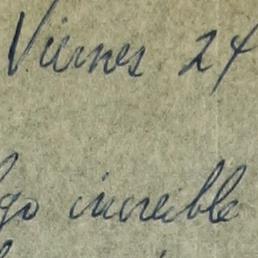 Viernes 24
go increible